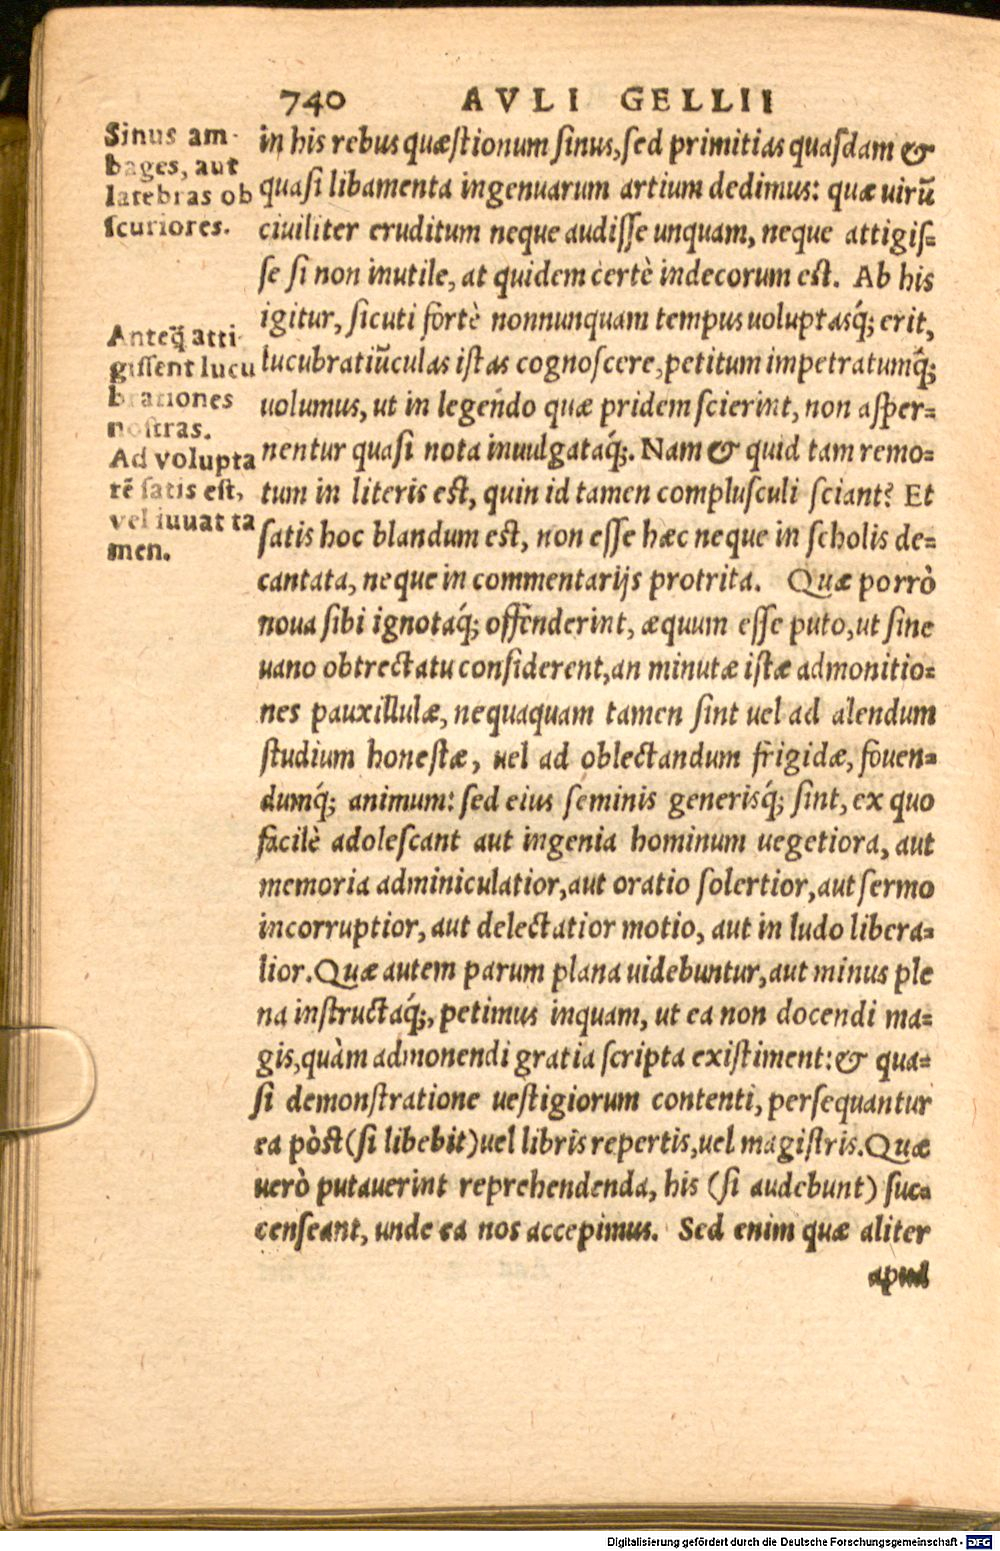 740 AVLI GELLII
Sinus am-
bages, aut
latebras ob
scuriores.
Anteq̃ atti-
gissent lucu
brationes
nostras.
Ad volupta
tẽ satis est,
vel iuuat ta
men.
in his rebus quæstionum sinus, sed primitias quasdam &
quasi libamenta ingenuarum artium dedimus: quæ uirũ
ciuiliter eruditum neque audisse unquam, neque attigis=
se si non inutile, at quidem certè indecorum est. Ab his
igitur, sicuti fortè nonnunquam tempus uoluptasq́; erit,
lucubratiũculas istas cognoscere, petitum impetratumq́;
uolumus, ut in legendo quæ pridem scierint, non asper=
nentur quasi nota inuulgataq́;. Nam & quid tam remo=
tum in literis est, quin id tamen complusculi sciant? Et
satis hoc blandum est, non esse hæc neque in scholis de=
cantata, neque in commentarijs protrita. Quæ porrò
noua sibi ignotaq́; offenderint, æquum esse puto, ut sine
uano obtrectatu considerent, an minutæ istæ admonitio=
nes pauxillulæ, nequaquam tamen sint uel ad alendum
studium honestæ, uel ad oblectandum frigidæ, fouen=
dumq́; animum: sed eius seminis generisq́; sint, ex quo
facilè adolescant aut ingenia hominum uegetiora, aut
memoria adminiculatior, aut oratio solertior, aut sermo
incorruptior, aut delectatior motio, aut in ludo libera=
lior. Quæ autem parum plana uidebuntur, aut minus ple
na instructaq́;, petimus inquam, ut ea non docendi ma=
gis, quàm admonendi gratia scripta existiment: & qua=
si demonstratione uestigiorum contenti, persequantur
ea pòst (si libebit) uel libris repertis, uel magistris. Quæ
uerò putauerint reprehendenda, his (si audebunt) suc=
censeant, unde ea nos accepimus. Sed enim quæ aliter
apud
Digitalisierung gefördert durch die Deutsche Forschungsgemeinschaft - DFG